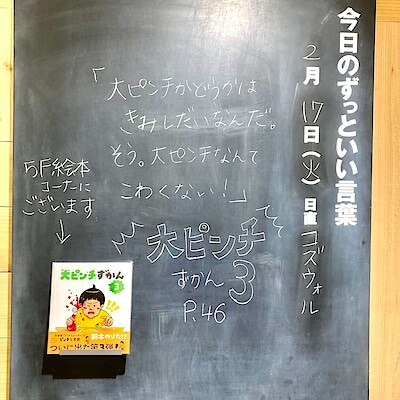 今日のずっといい言葉
2月17日(火) 日直 コズウォル
「大ピンチかどうかは
きみしだいなんだ。
そう。大ピンチなんて
こわくない!」
大ピンチ
ずかん3
P.46
5F絵本
コーナーに
ございます
大ピンチずかん
3
鈴木のりたけ
ついに出た第3弾!